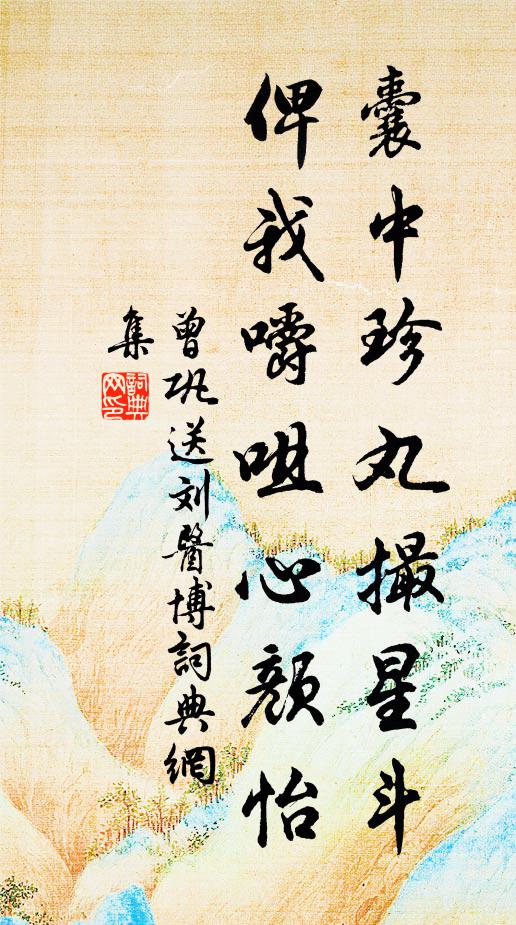 囊中珍丸撮星斗
俾我嚼咀心颜怡
曾巩送刘醫博詞典網
集
詞典
网印